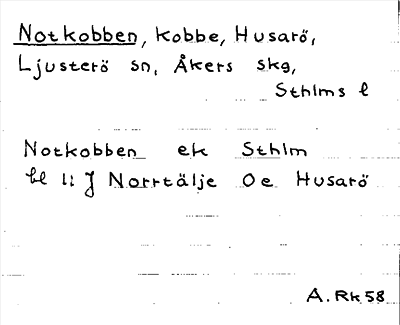 Notkobben, kobbe, Husarö,
Ljusterö sn, Åkers skg,
Sthlms l
Notkobben ek Sthlm
bl 11 J Norrtälje Oe Husarö
A. Rk 58